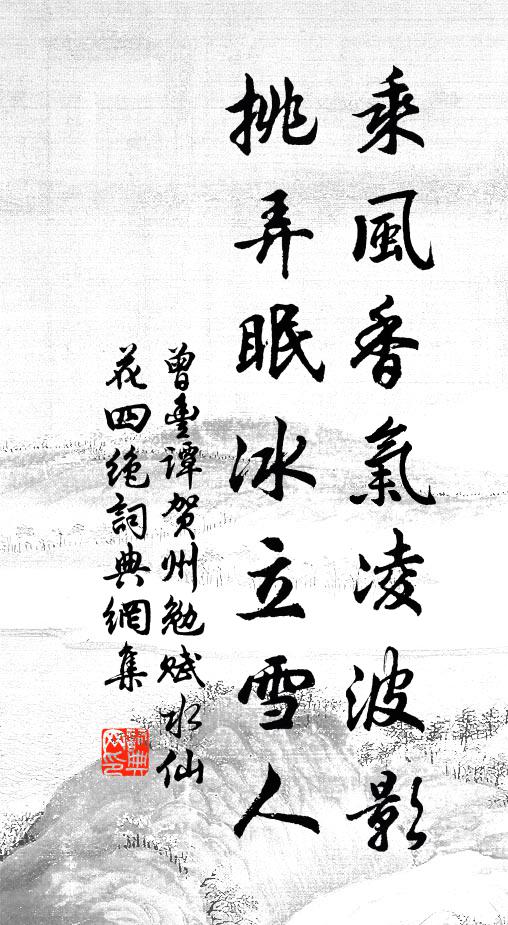 乘風香氣凌波影
挑弄眠冰立雪人
曾豊譚贺州勉赋水仙
花四绝詞典網集
詞典